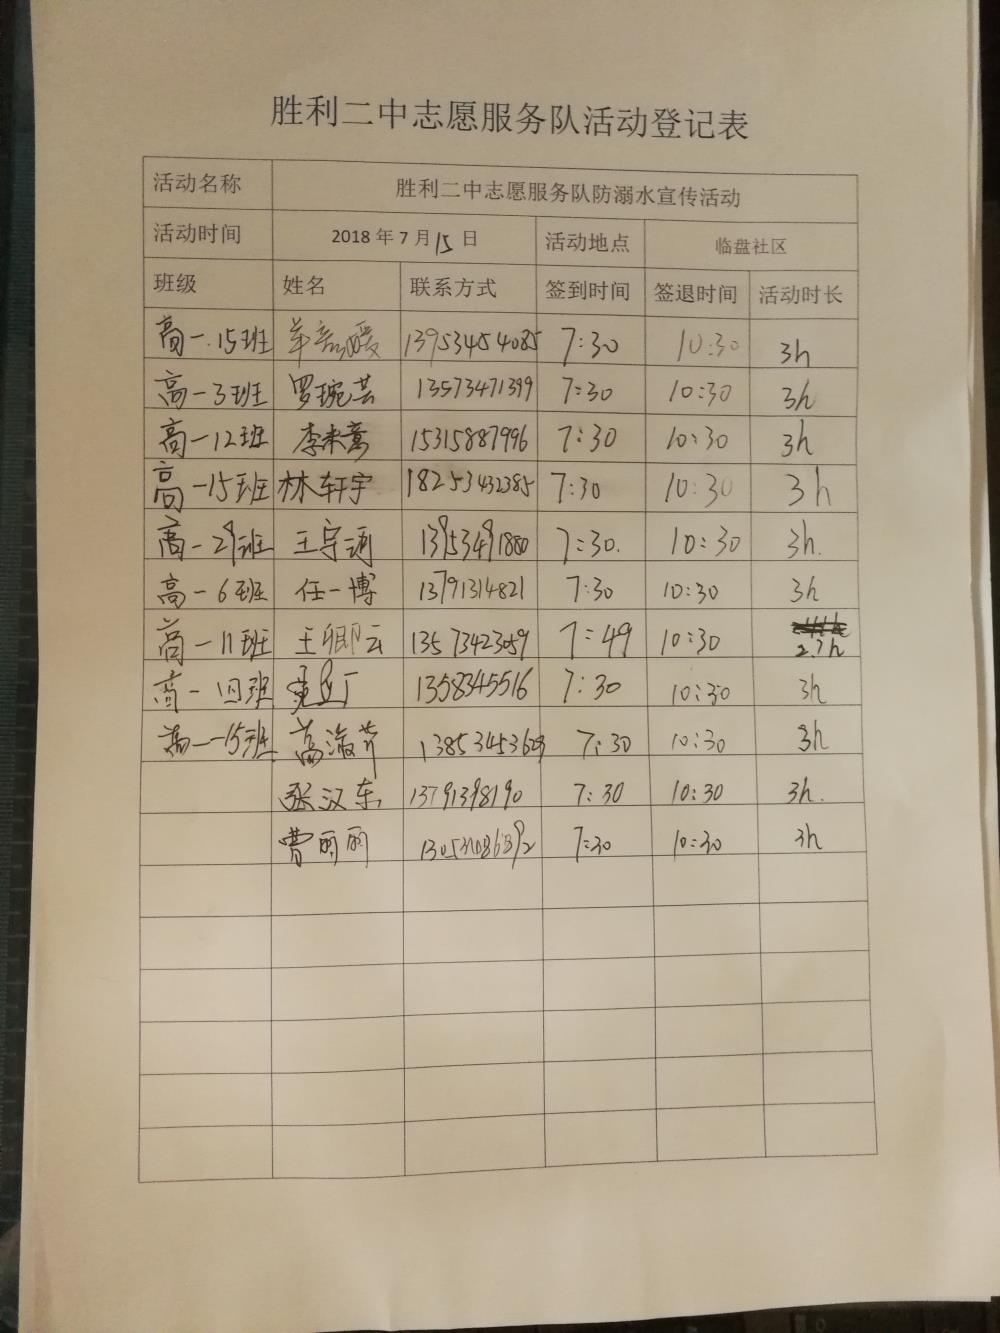 胜利二中志愿服务队活动登记表
活动名称 胜利二中志愿服务队防溺水宣传活动
活动时间 2018 年 7 月 15 日 活动地点 临盘社区
班级 姓名 联系方式 签到时间 签退时间 活动时长
高一.15班 13953454085 7:30 10:30 3h
高一3班 罗琬芸 13573471399 7:30 10:30 3h
高一12班 李来熹 15315887996 7:30 10:30 3h
高一15班 林轩宇 18253432385 7:30 10:30 3h
高一29班 王宇涵 13953491880 7:30. 10:30 3h.
高一6班 任一博 13791314821 7:30 10:30 3h
高一11班 王卿云 13573423059 7:49 10:30 2.7h
高一 班 1358345516 7:30 10:30 3h
高一15班 高 13853453629 7:30 10:30 3h
张汉东 1379398190 7:30 10:30 3h.
曹丽丽 7:30 10:30 3h